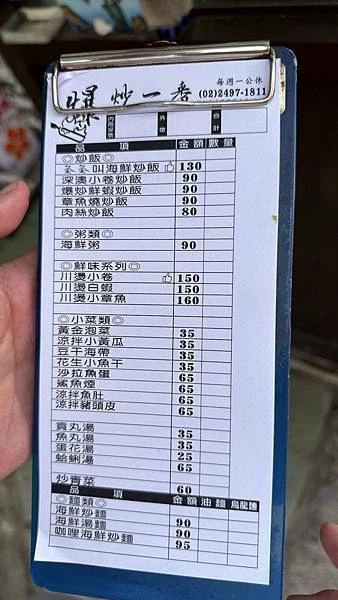 爆炒一番
每週一公休
(02)2497-1811
內用桌號 外帶 合計
品項 金額 數量
◎炒飯◎
叫海鮮炒飯 130
深澳小卷炒飯 90
爆炒鮮蝦炒飯 90
章魚燒炒飯 90
肉絲炒飯 80
◎粥類◎
海鮮粥 90
◎鮮味系列◎
川燙小卷 150
川燙白蝦 150
川燙小章魚 160
◎小菜類◎
黃金泡菜 35
涼拌小黃瓜 35
豆干海帶 35
花生小魚干 35
沙拉魚蛋 65
鯊魚煙 65
涼拌魚肚 65
涼拌豬頭皮 65
貢丸湯 35
魚丸湯 35
蛋花湯 25
蛤蜊湯 65
炒青菜 60
品項 金額 油麵 烏龍麵
◎麵類◎
海鮮炒麵 90
海鮮湯麵 90
咖哩海鮮炒麵 95